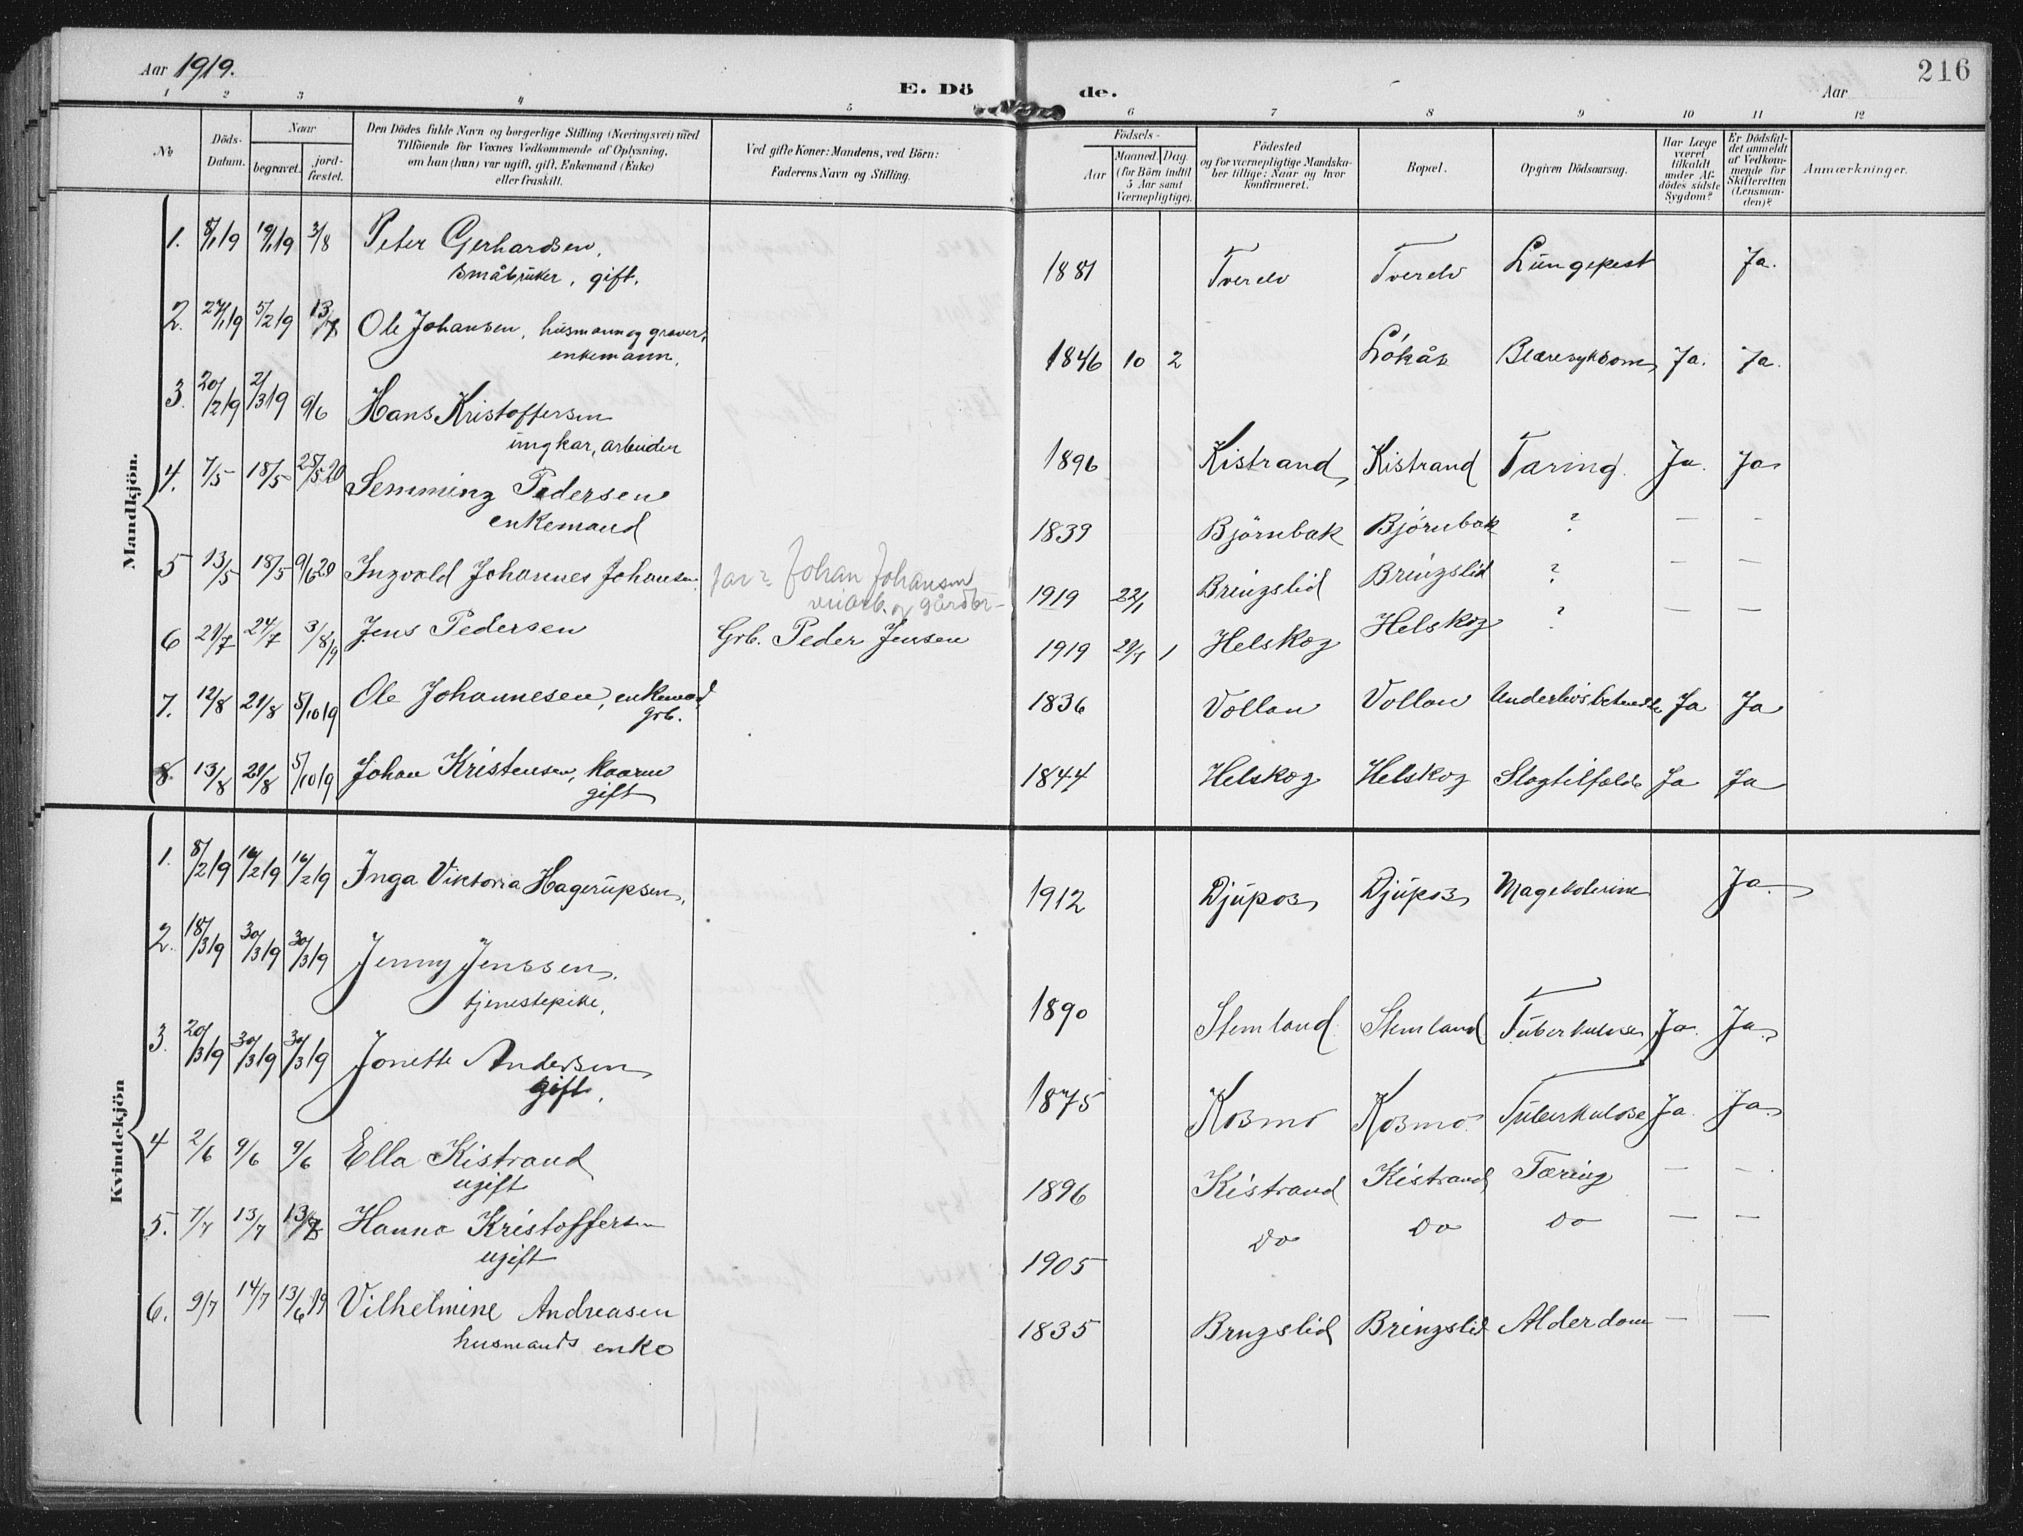 Aar 1919.
E. Dö
de.
Aar
216
1 2 3 4 5 6 7 8 9 10 11 12
No
Döds-
Datum.
Naar
begravet.
jord-
fæstet.
Den Dödes fulde Navn og borgerlige Stilling (Næringsvei) med
Tilföiende for Voxnes Vedkommende af Oplysning,
om han (hun) var ugift, gift, Enkemand (Enke)
eller fraskilt.
Ved gifte Koner: Mandens, ved Börn:
Faderens Navn og Stilling.
Födsels-
Aar
Maaned. Dag.
(for Börn indtil
5 Aar samt
Værnepligtige).
Födested
og for værnepligtige Mandska-
ber tillige: Naar og hvor
konfirmeret.
Bopæl.
Opgiven Dödsaarsag.
Har Læge
været
tilkaldt
under Af-
dödes sidste
Sygdom?
Er Dödsfal-
det anmeldt
af Vedkom-
mende for
Skifteretten
(Lensman-
den)?
Anmærkninger.
Mandkjön.
1. 8/1 19 19/1 19 3/8 Peter Gerhardsen, 1881 Tverelv Tverelv Lungepest Ja.
småbruker, gift.
2. 27/1 19 5/2 19 13/7 Ole Johansen, husmann og graver, 1846 10 2 Lókås Blæresykdom Ja. Ja.
enkemann.
3. 20/2 19 2/3 19 9/6 Hans Kristoffersen 1896 Kistrand Kistrand Tæring. Ja. Ja
ungkar, arbeider
4. 7/5 18/5 25/5 20 Semming Pedersen 1839 Björnbak Björnbak ? — —
enkemand
5 13/5 18/5 9/6 20 Ingvald Johannes Johansen far: Johan Johansen 1919 22/1 Bringslid Bringslid ? — —
veiarb. og gårdbr
6 21/7 24/7 3/8 19 Jens Pedersen Grb. Peder Jensen 1919 1 Helskog Helskog ? — —
7. 12/8 21/8 5/10 19 Ole Johannesen, enkemand 1836 Vollan Vollan Ja Ja
grb.
8. 13/8 21/8 5/10 19 Johan Kristensen, kaarm 1844 Helskog Helskog Slagtilfælde Ja Ja
gift
Kvindekjön
1. 8/2 19 16/2 19 16/2 19 Inga Viktoria Hagerupsen, 1912 Djupos Djupos Magekolerine Ja.
2. 18/3 19 30/3 19 30/3 19 Jenny Jenssen, 1890 Stemland. Stemland Tuberkulose Ja. Ja.
tjenestepike,
3. 20/3 19 30/3 19 30/3 19 Jonette Andersen 1875 Kosmo Kosmo. Tuberkulose Ja. Ja.
gift.
4 2/6 9/6 9/6 Ella Kistrand 1896 Kistrand Kistrand Tæring — —
ugift
5. 7/7 13/7 13/7 Hanna Kristoffersen 1905 Do Do Do — —
ugift
6. 9/7 14/7 13/6 19 Vilhelmine Andreasen 1835 Brngslid Bringslid Alderdom — —
husmands enke